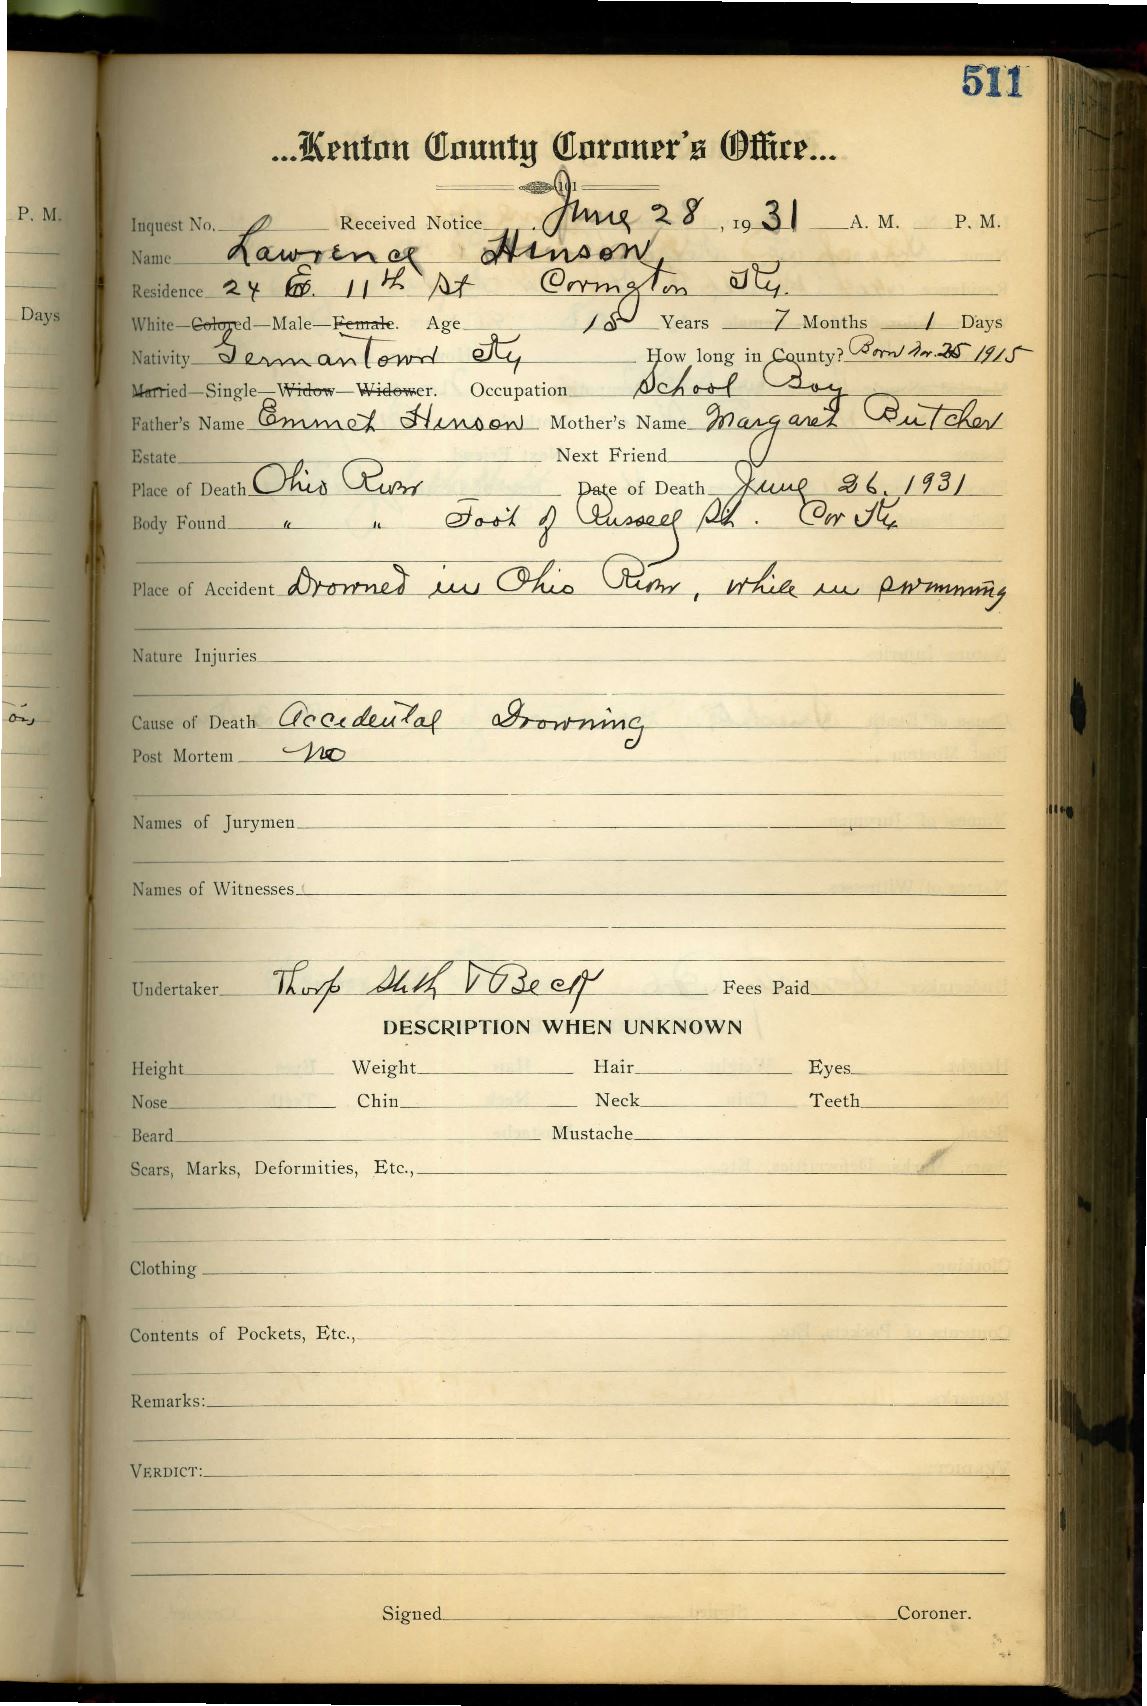 511
...Kenton County Coroner's Office...
101
Inquest No. Received Notice June 28, 1931 A. M. P. M.
Name Lawrence Hinson
Residence 24 E. 11th St Covington Ky.
White—Colored—Male—Female. Age 15 Years 7 Months 1 Days
Nativity Germantown Ky How long in County? Born Nov. 25 1915
Married—Single—Widow—Widower. Occupation School Boy
Father's Name Emmet Hinson Mother's Name Margaret Butcher
Estate Next Friend
Place of Death Ohio River Date of Death June 26. 1931
Body Found " " Foot of Russell St. Cov Ky
Place of Accident Drowned in Ohio River, while in swimming
Nature Injuries
Cause of Death Accidental Drowning
Post Mortem No
Names of Jurymen
Names of Witnesses
Undertaker Thorp & Beck Fees Paid
DESCRIPTION WHEN UNKNOWN
Height Weight Hair Eyes
Nose Chin Neck Teeth
Beard Mustache
Scars, Marks, Deformities, Etc.,
Clothing
Contents of Pockets, Etc.,
Remarks:
VERDICT:
Signed Coroner.
P. M.
Days